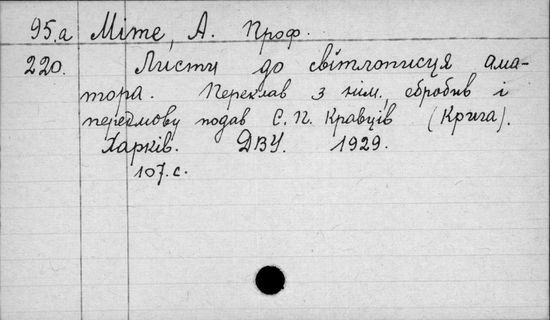 95.а Міте, А. Проф.
220. Листи до світлописця ама-
тора. Переклав з нім., обробив і
передмову подав С. П. Кравців (Крига).
Харків. ДВУ. 1929.
107. с.